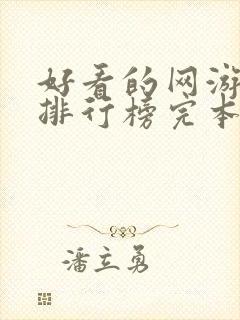 好看的网游
排行榜完本
潘立勇